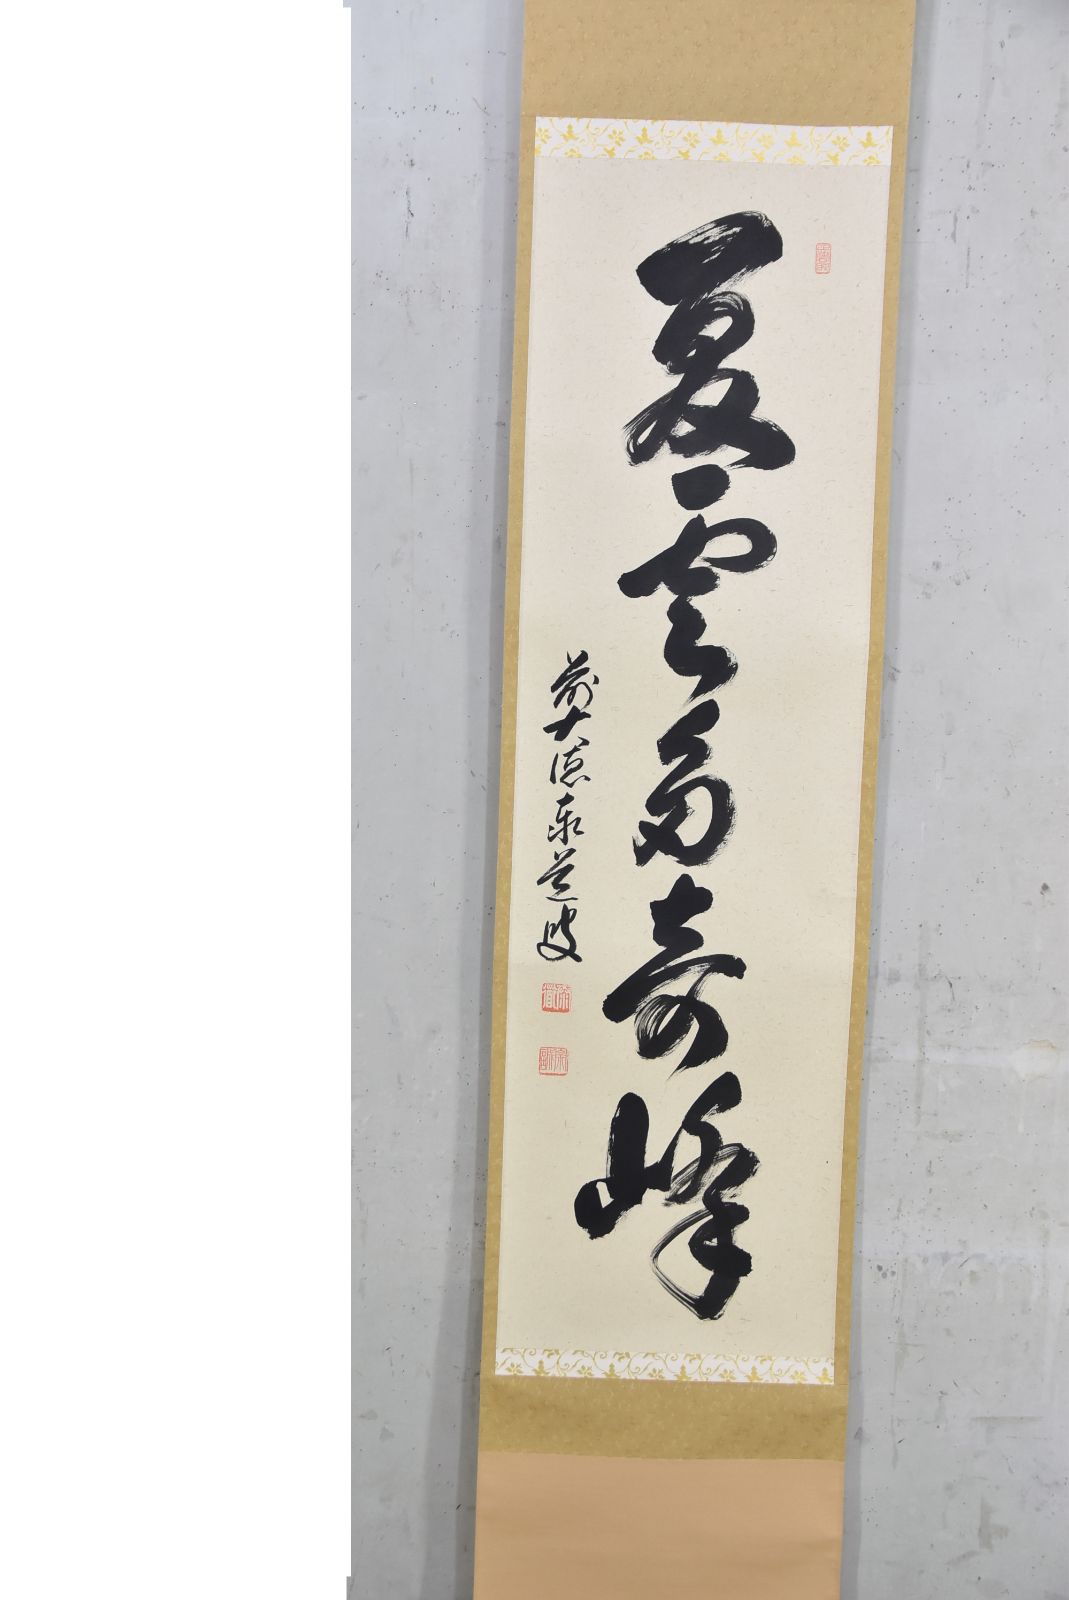 夏雲多奇峰
前大徳泰道叟